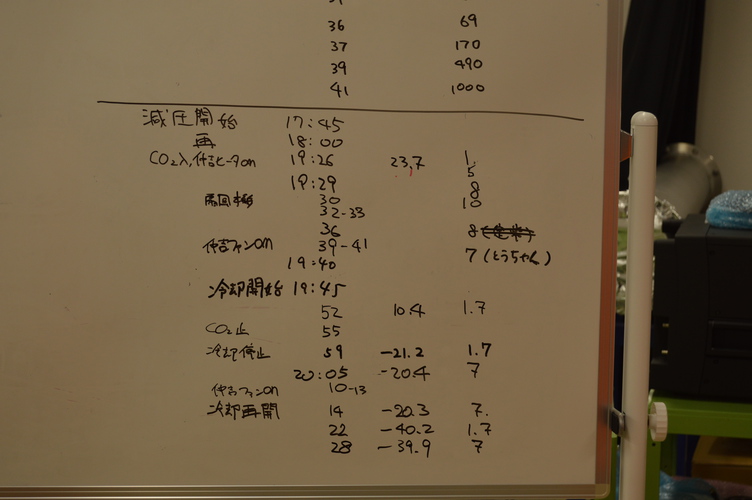 36 69
37 170
39 490
41 1000
減圧開始 17:45
再 18:00
CO₂入, ヒータon 19:26 23.7 1.
5
19:29 8
30 10
32-33
36 8
ファンon 39-41
19:40 7 (とうちゃん)
冷却開始 19:45
52 10.4 1.7
CO₂止 55
冷却停止 59 -21.2 1.7
20:05 -20.4 7
ファンon 10-13
冷却再開 14 -20.3 7.
22 -40.2 1.7
28 -39.9 7